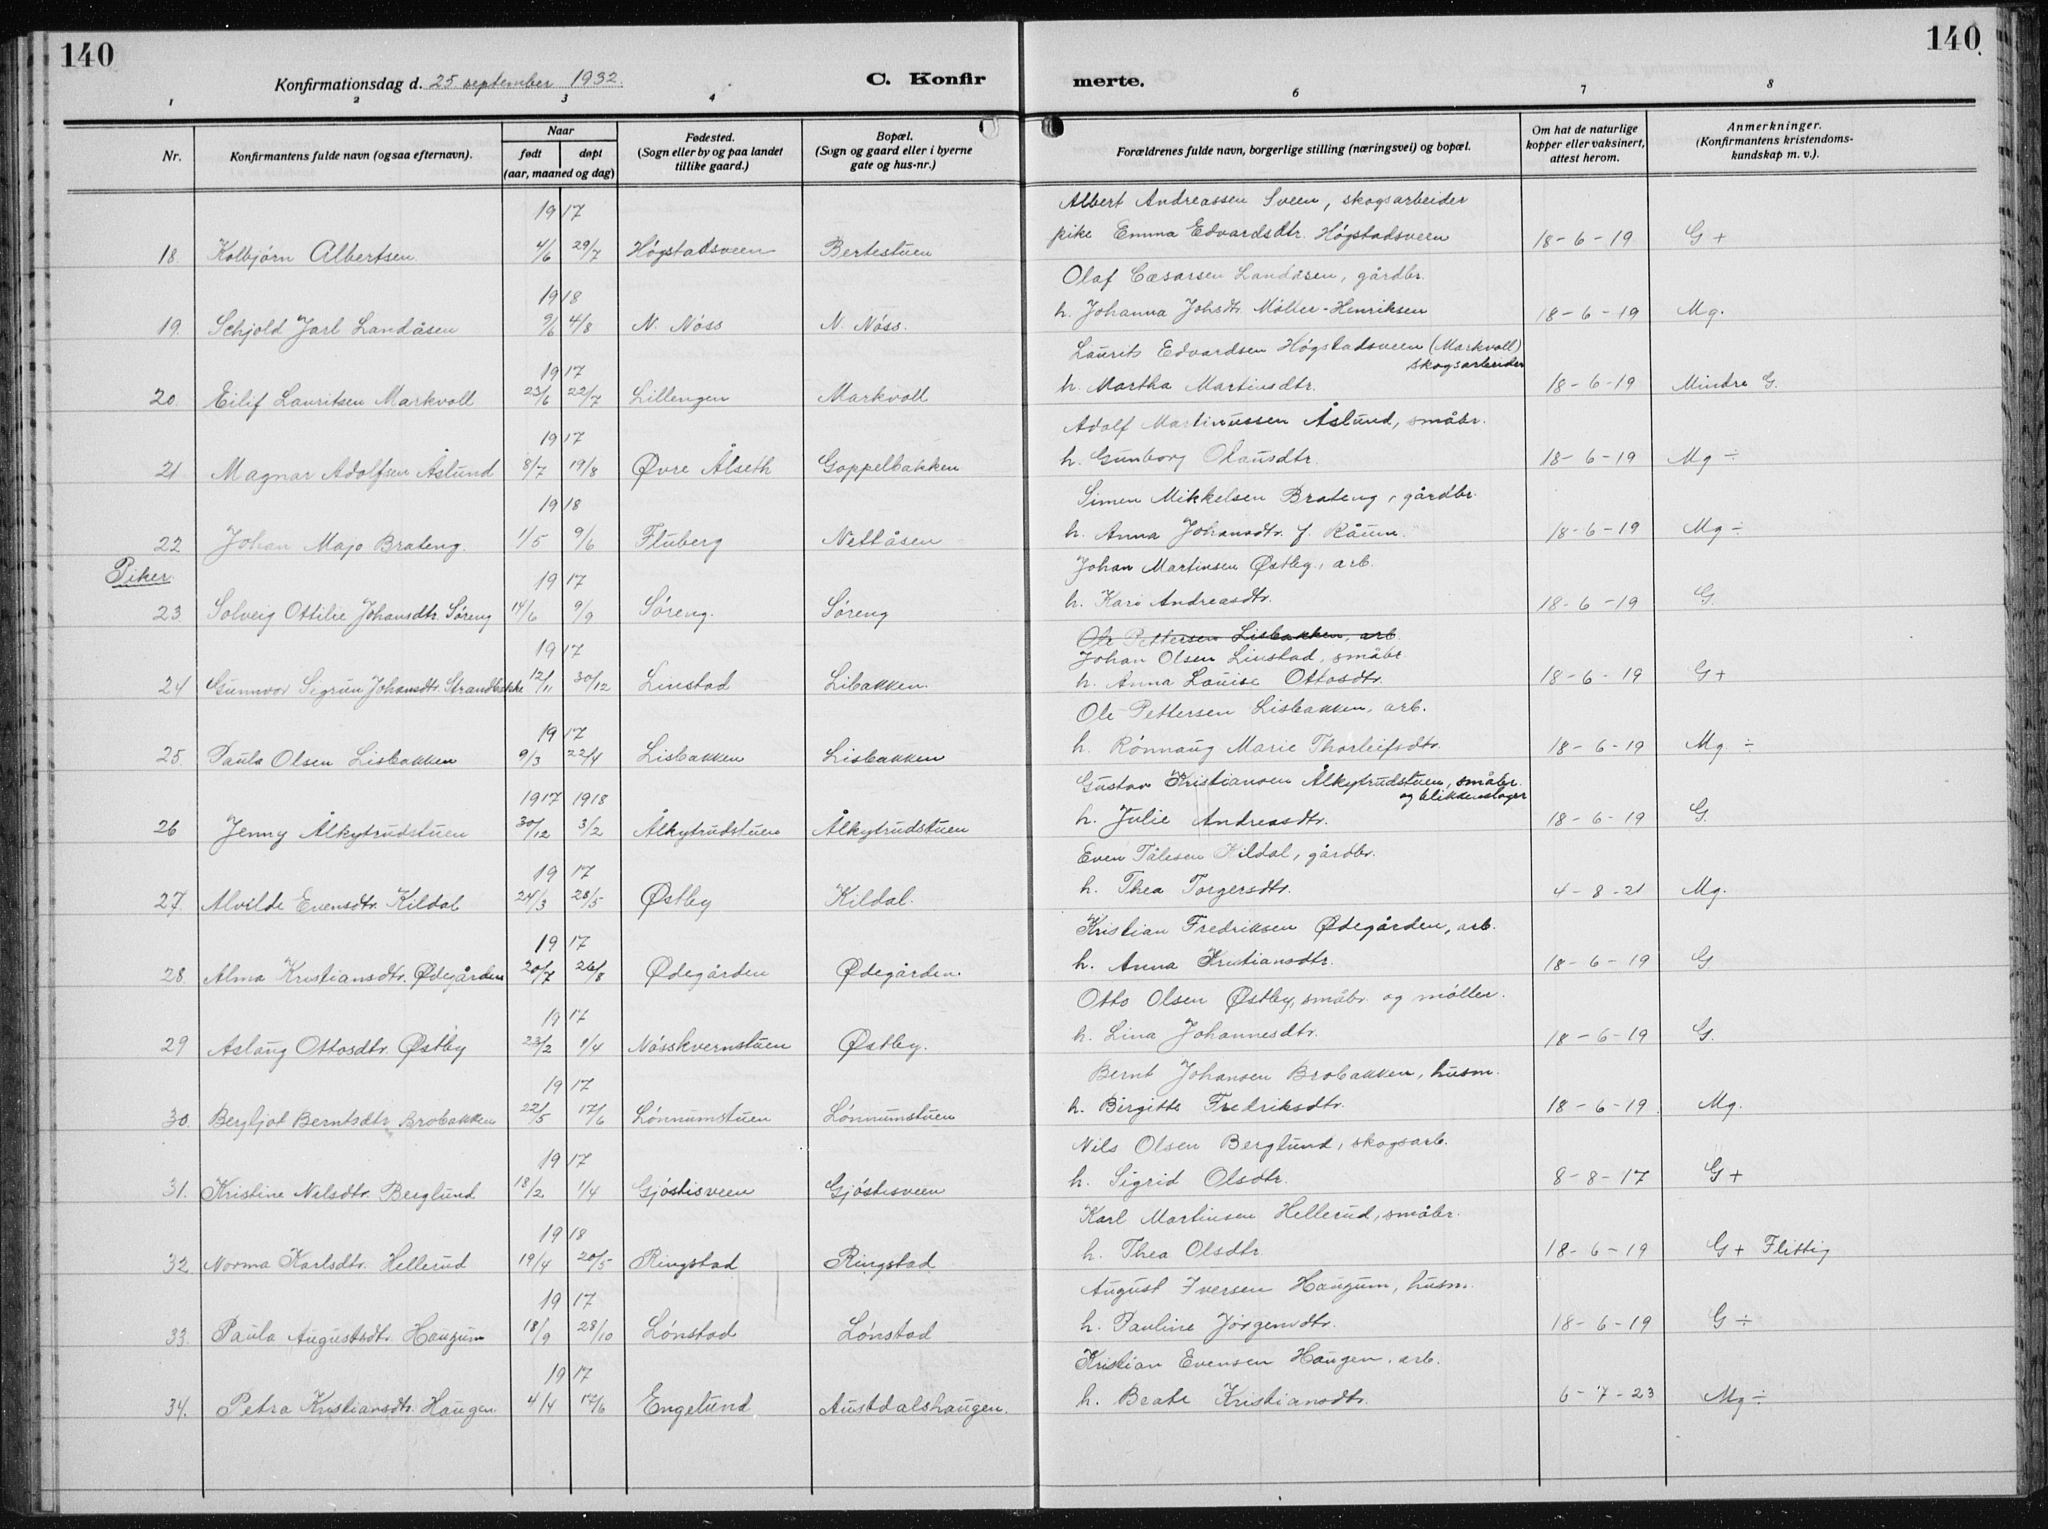 140
140
Konfirmationsdag d. 25 september 1932.
C. Konfir
merte.
1 2 3 4 6 7 8
Nr.
Konfirmantens fulde navn (ogsaa efternavn).
Naar
født døpt
(aar, maaned og dag)
Fødested.
(Sogn eller by og paa landet
tillike gaard.)
Bopæl.
(Sogn og gaard eller i byerne
gate og hus-nr.)
Forældrenes fulde navn, borgerlige stilling (næringsvei) og bopæl.
Om hat de naturlige
kopper eller vaksinert,
attest herom.
Anmerkninger.
(Konfirmantens kristendoms-
kundskap m. v.).
1917 Albert Andreassen Sveen, skogsarbeider
18. Kolbjørn Albertsen 4/6 29/7 Høgstadsveen Bertestuen pike Emma Edvardsdtr. Høgstadsveen 18-6-19 G +
1918 Olaf Cæsarsen Landåsen, gårdbr.
19. Schjold Jarl Landåsen 9/6 4/8 N. Nøss N. Nøss. h. Johanna Johsdtr. Møller-Henriksen 18-6-19 Mg.
1917 Laurits Edvardsen Høgstadsveen (Markvoll)
skogsarbeider
20. Eilif Lauritsen Markvoll 23/6 22/7 Lillengen Markvoll h. Martha Martinsdtr. 18-6-19 Mindre G.
1917 Adolf Martinussen Åslund, småbr.
21 Magnar Adolfsen Åslund 8/7 19/8 Øvre Ålseth Goppelbakken h. Gunborg Olausdtr. 18-6-19 Mg ÷
1918 Simen Mikkelsen Brateng, gårdbr.
22 Johan Majo Brateng. 1/5 9/6 Fluberg Nettåsen h. Anna Johansdtr. f. Råum. 18-6-19 Mg ÷
Piker 1917 Johan Martinsen Østby, arb.
23. Solveig Ottilie Johansdtr. Søreng 14/6 9/9 Søreng. Søreng h. Kari Andreasdtr. 18-6-19 G.
1917 Ole Pettersen Lisbakken, arb.
Johan Olsen Linstad, småbr.
24 Gunnvor Sigrun Johansdtr. Strandbakke 12/11 30/12 Linstad Libakken. h. Anna Louise Ottosdtr. 18-6-19 G +
1917 Ole Pettersen Lisbakken, arb.
25. Paula Olsen Lisbakken 9/3 22/4 Lisbakken Lisbakken h. Rønnaug Marie Thorleifsdtr. 18-6-19 Mg ÷
1917 1918 Gustav Kristiansen Ålkytrudstuen, småbr.
og blikkenslager
26 Jenny Ålkytrudstuen 30/12 3/2 Ålkytrudstuen Ålkytrudstuen h. Julie Andreasdtr. 18-6-19 G.
1917 Even Pålesen Kildal, gårdbr.
27. Alvilde Evensdtr. Kildal 24/3 28/5 Østby Kildal. h. Thea Torgersdtr. 4-8-21 Mg.
1917 Kristian Fredriksen Ødegården, arb.
28. Alma Kristiansdtr. Ødegården 20/7 26/8 Ødegården Ødegården. h. Anna Kristiansdtr. 18-6-19 G
1917 Otto Olsen Østby, småbr. og møller.
29 Aslaug Ottosdtr. Østby 23/2 1/4 Nøsskvernstuen Østby. h. Lina Johannesdtr. 18-6-19 G.
1917 Bernt Johansen Brobakken, husm.
30. Bergljot Berntsdtr. Brobakken 22/5 17/6 Lønnumstuen Lønnumstuen h. Birgitte Fredriksdtr. 18-6-19. Mg.
1917 Nils Olsen Berglund, skogsarb.
31. Kristine Nilsdtr. Berglund 18/2 1/4 Gjøstisveen Gjøstisveen h. Sigrid Olsdtr. 8-8-17 G +
1918 Karl Martinsen Hellerud, småbr.
32 Norma Karlsdtr. Hellerud 19/4 20/5 Ringstad Ringstad h. Thea Olsdtr. 18-6-19 G + Flittig
1917 August Iversen Haugum, husm.
33. Paula Augustsdtr. Haugum 18/9 28/10 Lønstad Lønstad h. Pauline Jørgensdtr. 18-6-19 G ÷
1917 Kristian Evensen Haugen, arb.
34. Petra Kristiansdtr. Haugen 4/4 17/6 Engelund Austdalshaugen. h. Beate Kristiansdtr. 6-7-23 Mg ÷